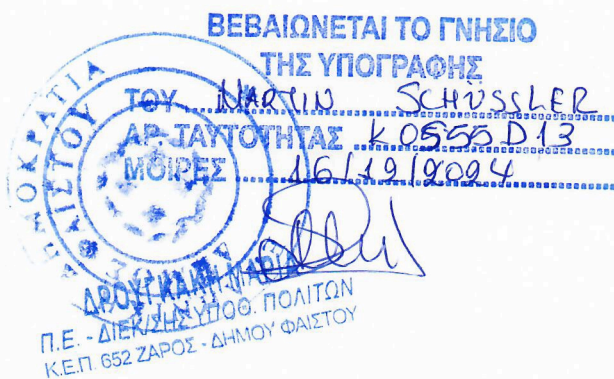 ΒΕΒΑΙΩΝΕΤΑΙ ΤΟ ΓΝΗΣΙΟ
ΤΗΣ ΥΠΟΓΡΑΦΗΣ
ΤΟΥ MARTIN SCHÜSSLER
ΑΡ. ΤΑΥΤΟΤΗΤΑΣ
ΜΟΙΡΕΣ 16/12/2024
ΔΡΟΥΓΚΑΚΗ ΜΑΡΙΑ
Π.Ε. - ΔΙΕΚ/ΣΗΣ ΥΠΟΘ. ΠΟΛΙΤΩΝ
Κ.Ε.Π. 652 ΖΑΡΟΣ - ΔΗΜΟΥ ΦΑΙΣΤΟΥ